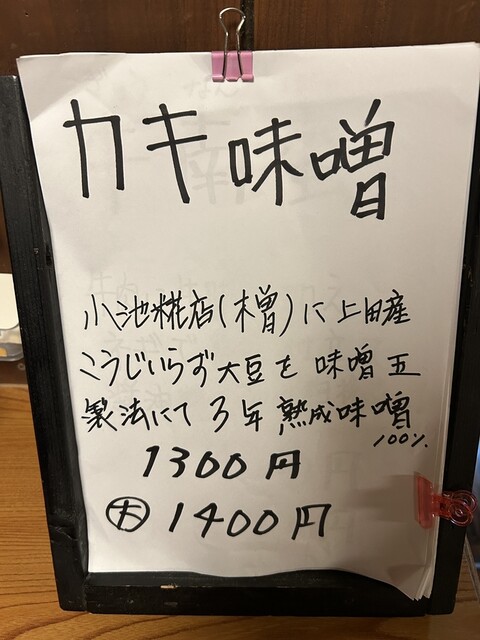 カキ味噌
小池糀店(木曽)に上田産
こうじいらず大豆を味噌玉
製法にて3年熟成味噌
100%
1300円
大 1400円